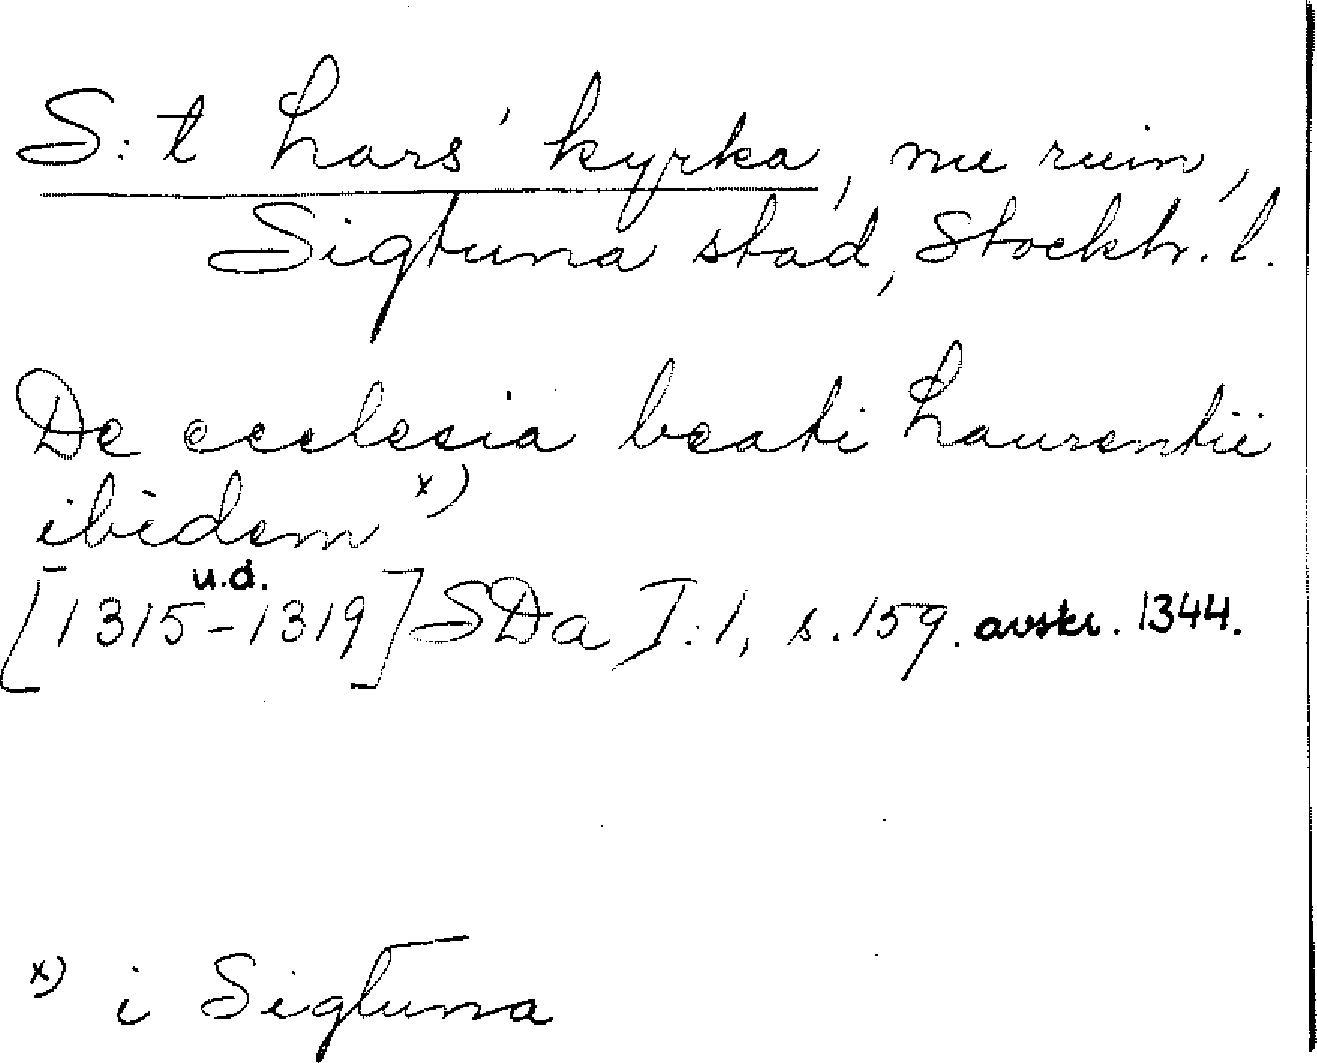 S:t Lars' kyrka, nu ruin,
Sigtuna stad, Stockh. l.
De ecclesia beati Laurentii
ibidem x)
u.d.
[1315-1319] SDa I:1, s. 159. avskr. 1344.
x) i Sigtuna